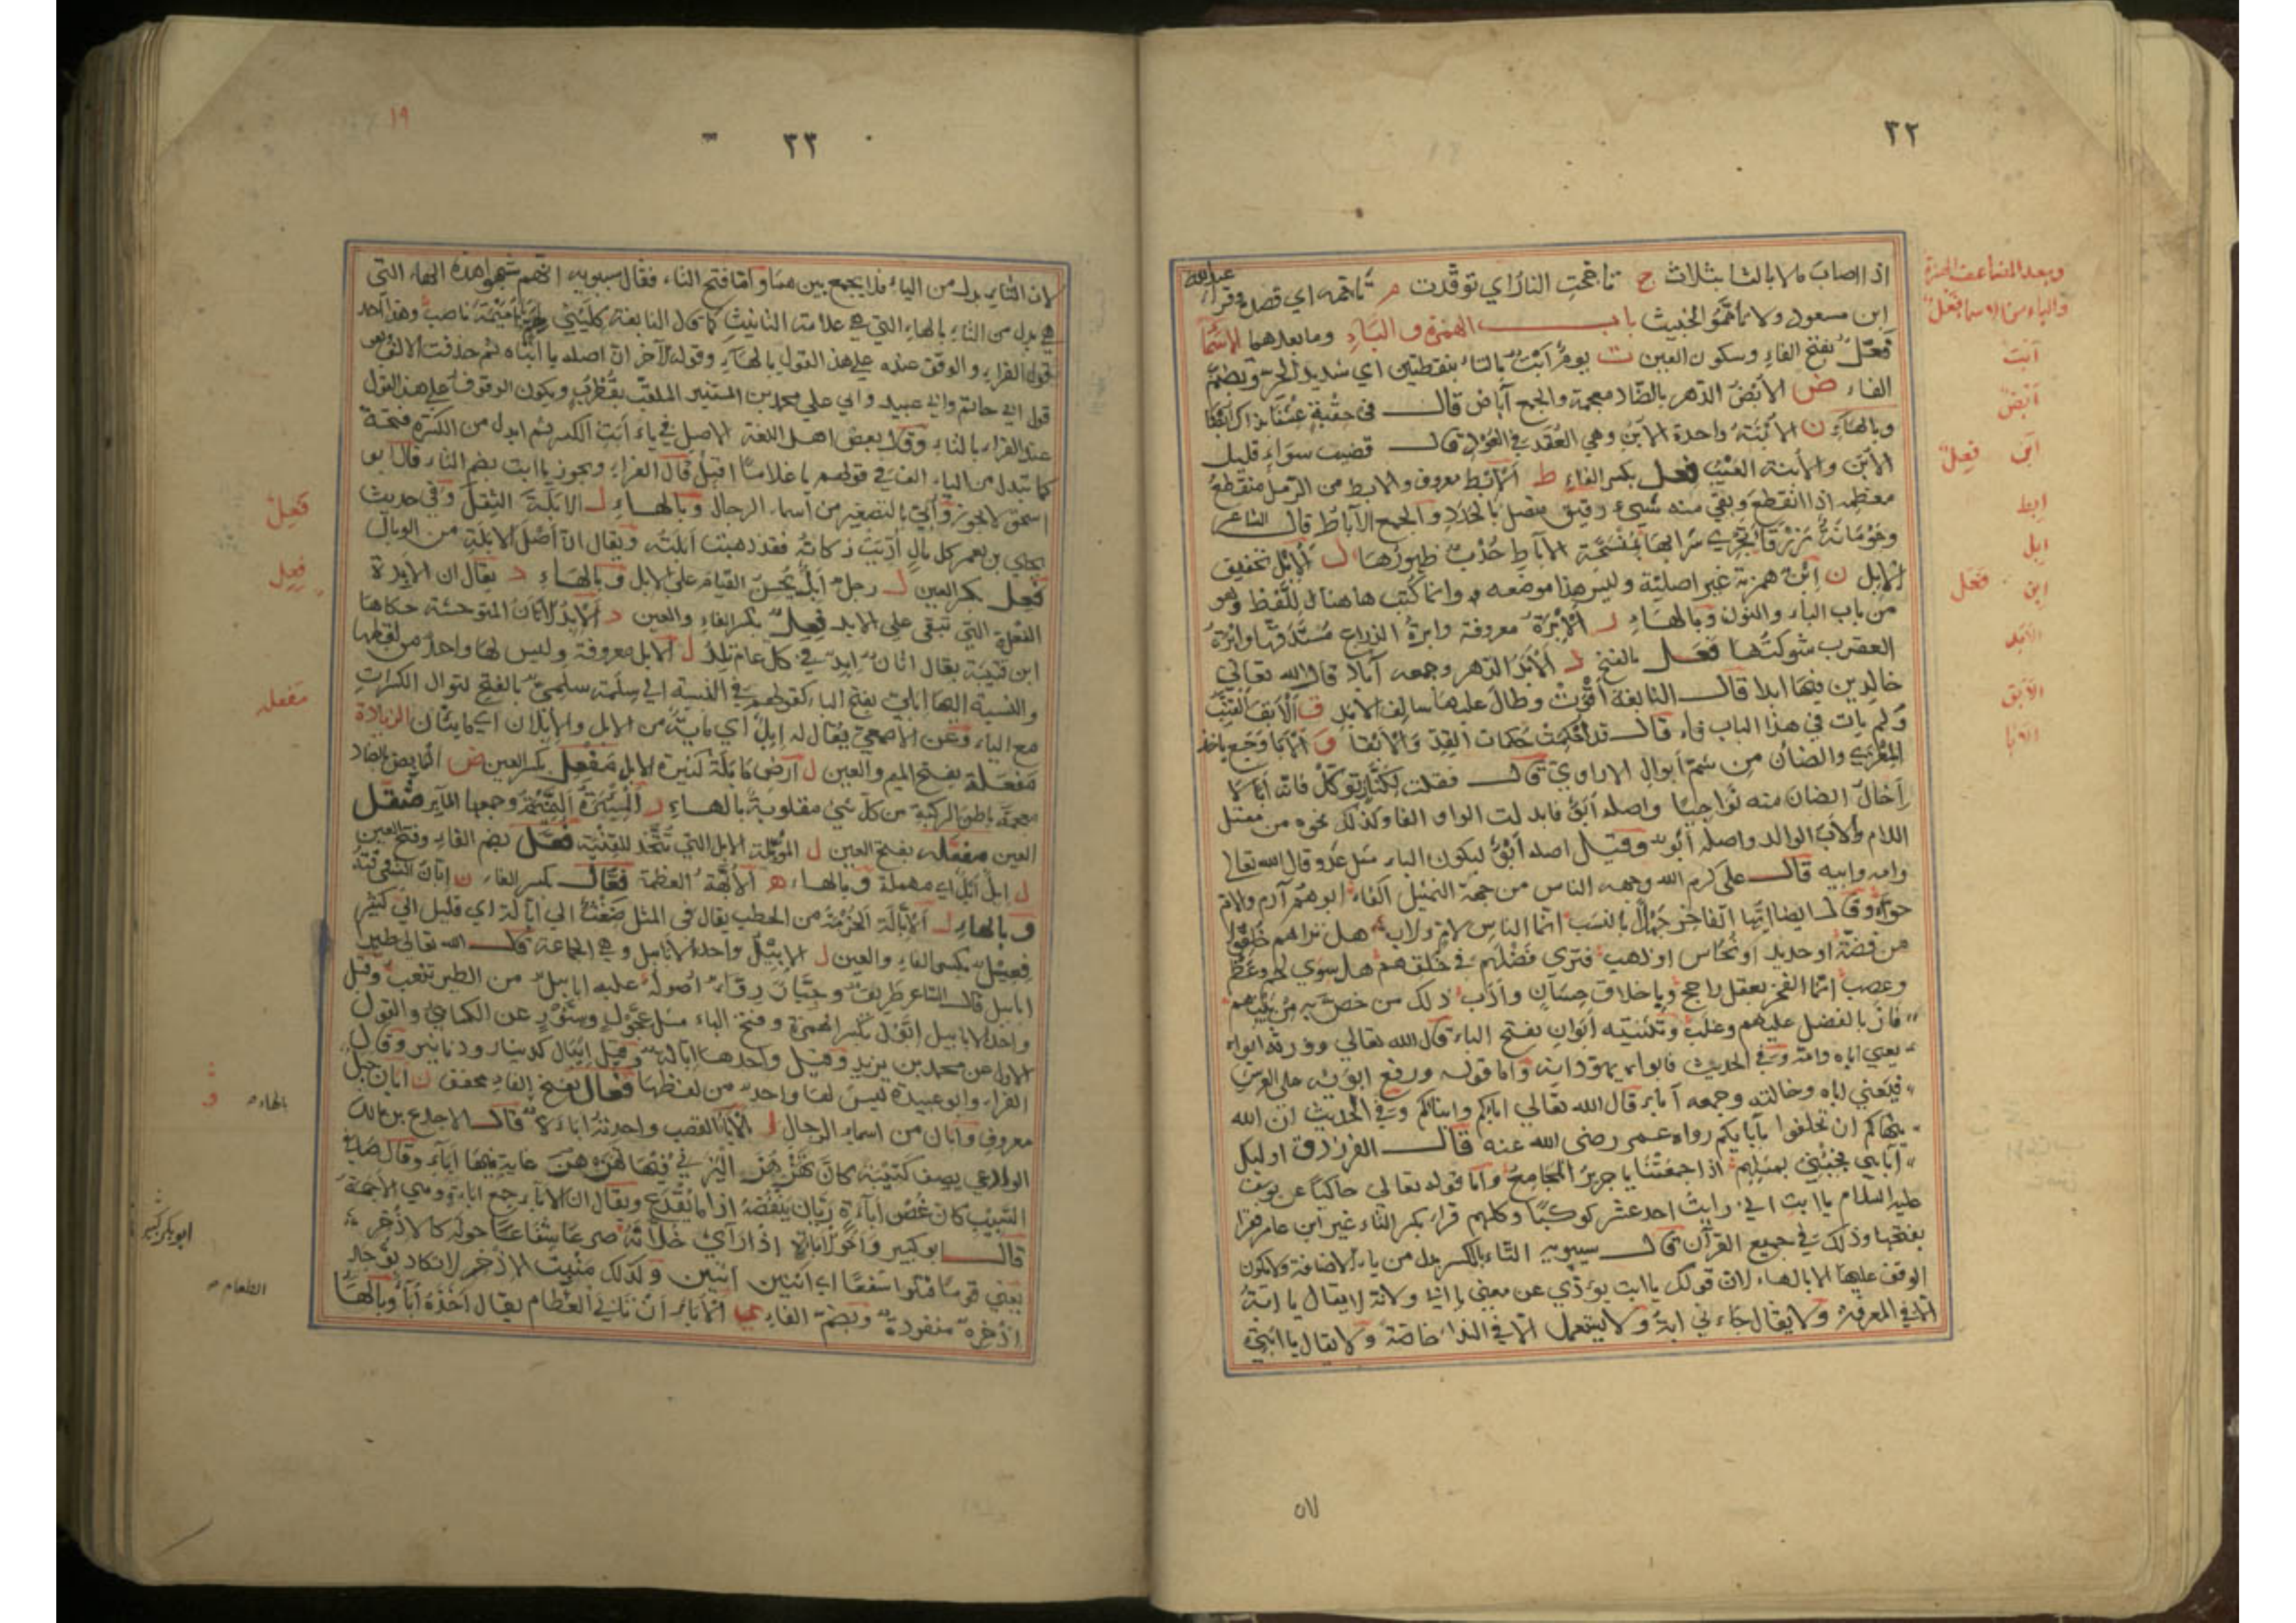 ٣٢
اذا اصاب ماءً بالثا بثلاث ج تأججت النار اي توقدت م تأممه اي قصده وقرأ عبد الله
ابن مسعود ولا تأمموا الخبيث باب الهمزة والباء وما بعدهما الأسما
فَعْلٌ بفتح الفاء وسكون العين ت يومٌ أَبْتٌ بالتاء بنقطتين اي شديد الحر وبضم
الفاء ض الأُبْضُ الدهر بالضاد معجمة والجمع آباض قال في حقبة عشنا بذاك أُبْضا
وبالهاء ن الأُبْنَة واحدة الأُبَن وهي العُقَد في العُود قال قضيب سواء قليل
الأُبَن والأبنة العيب فعل بكسر الفاء ط الإبْط معروف والابط من الرمل منقطع
معظمه اذا انقطع وبقي منه شيء رقيق متصل بالجدد والجمع الآباط قال الشاعر
وحومانة زرقا يجري سرابها بمنسحة الآباط حُدْب ظهورها ل الإبْل تخفيف
الإبل ن اِبْن همزته غير اصلية وليس هذا موضعه وانما كُتِب هاهنا لِلَّفظ وهو
من باب الباء والنون وبالهاء ر الإبْرَة معروفة وابرة الذراع مُسْتَدَقّها وابرة
العقرب شوكتها فَعَل بالفتح د الأَبَد الدهر وجمعه آباد قال الله تعالى
خالدين فيها ابدا قال النابغة أقوت وطال عليها سالف الأبد ق الأَبَق القِنَّب
ولم يات في هذا الباب فاء قال قد أحكمت حكمات القِدّ والأبقا و الأبا وجع ياخذ
المِعْزى والضأن من شم أبوال الاراوي قال فقلت لكنّاز توكّل فانه أبا لا
إخال الضان منه نواجيا واصله أَبَوٌ فابدلت الواو الفا وكذلك نحوه من معتل
اللام والأب الوالد واصله أبو وقيل اصله أَبْوٌ بسكون الباء مثل غَدْو قال الله تعالى
وامه وابيه قال علي كرم الله وجهه الناس من جهة التمثيل أكفاء ابوهم آدم والام
حواء وقال ايضا ايها الفاخر جهلا بالنسب انما الناس لام ولاب هل تراهم خلقوا
من فضة او حديد او نحاس او ذهب فترى فضلهم في خلقهم هل سوى لحم وعظم
وعصب انما الفخر بعقل راجح وباخلاق حسان وأدب ذلك من خص به من بينهم
فاز بالفضل عليهم وغلب وتثنيته أبوان بفتح الباء قال الله تعالى وورثه ابواه
يعني اباه وامه وفي الحديث فابواه يهودانه واما قوله ورفع ابويه على العرش
فيعني اباه وخالته وجمعه آباء قال الله تعالى اباؤكم وابناؤكم وفي الحديث ان الله
ينهاكم ان تحلفوا بآبائكم رواه عمر رضى الله عنه قال الفرزدق اوليك
آبائي فجئني بمثلهم اذا جمعتنا يا جرير المجامع واما قوله تعالى حاكيا عن يوسف
عليه السلام يا ابت اني رايت احد عشر كوكبا وكلهم قرأ بكسر التاء غير ابن عامر فقرا
بفتحها وذلك في جميع القرآن قال سيبويه التاء بالكسر بدل من ياء الاضافة ولا يكون
الوقف عليها الا بالهاء لان قولك يا ابت يؤدي عن معنى يا ابي ولانه لا يقال يا ابة
الا في المعرفة ولا يقال جاءني ابة ولا يستعمل الا في النداء خاصة ولا يقال يا ابتي
لان
وبعد المضاعف الهمزة
والباء من الاسما فَعْلٌ
أبت
أبض
ابن فِعل
ابط
ابل
ابن فَعَل
الأبد
الأبق
الابا
١٩
٣٣
لان التاء بدل من الياء فلا يجمع بينهما واما فتح التاء فقال سيبويه انهم شبهوا هذه الهاء التي
هي بدل من التاء بالهاء التي هي علامة التانيث كما قال النابغة كليني لهم يا اميمة ناصب وهذا احد
قول الفراء والوقف عنده على هذا القول بالهاء وقوله الآخر ان اصله يا ابتاه ثم حذفت الالف وهو
قول ابي حاتم وابي عبيد وابي علي محمد بن المستنير الملقب بقُطْرُب ويكون الوقوف على هذا القول
عند الفراء بالتاء وقال بعض اهل اللغة الاصل في يا أبت الكسر ثم ابدل من الكسرة فتحة
كما تبدل من الياء الف في قولهم يا غلاما اقبل قال الفراء ويجوز يا ابت بضم التاء قال ابو
اسحق لا يجوز وأُبيّ بالتصغير من اسماء الرجال وبالهاء ل الابَلَة الثِقَل وفي حديث
يحيى بن يعمر كل مال أدّيت زكاته فقد ذهبت أَبَلَته ويقال ان أصل الابلة من الوبال
فَعِل بكسر العين ل رجل أَبِلٌ يُحسن القيام على الابل وبالهاء د يقال ان الأبِدة
الفعلة التي تبقى على الابد فِعِل بكسر الفاء والعين د الإبِد الأتان المتوحشة حكاها
ابن قتيبة يقال اتان إبِد في كل عام تلد ل الابل معروفة وليس لها واحد من لفظها
والنسبة اليها إبَلي بفتح الباء كقولهم في النسبة الى سَلِمة سلَمي بالفتح لتوال الكسرات
مع الياء وعن الاصمعي يقال له إبِل اي ماية من الابل والإبِلان اي مايتان الزيادة
مَفْعَلة بفتح الميم والعين ل ارض مَأبَلة كثيرة الابل مَفْعِل بكسر العين ض المأبِض بالضاد
معجمة باطن الركبة من كل شيء مقلوبة بالهاء ر المِئْبَرة النميمة وجمعها المآبر مثقل
العين مفعّلة بفتح العين ل المؤبّلة الابل التي تُتّخذ للقنية فُعَّل بضم الفاء وفتح العين
ل إبِلٌ أُبّلٌ اي مهملة وبالهاء ه الأُبّهة العظمة فِعّال بكسر الفاء ن إبّان الشيء وقته
وبالهاء ل الإبّالة الحزمة من الحطب يقال في المثل ضِغْث الى إبّالة اي قليل الى كثير
فِعّيل بكسر الفاء والعين ل الإبّيل واحد الابابيل وهي الجماعة قال الله تعالى طيرا
ابابيل قال الشاعر طريق وجبّار رِواء أصوله عليه ابابيل من الطير تنعب وقيل
واحد الابابيل إبّول بكسر الهمزة وفتح الباء مثل عِجّول وسِنّور عن الكسائي والقول
الاول عن محمد بن يزيد وقيل واحدها إبّالة وقيل إيبال كدينار ودنانير وقال
الفراء وابو عبيدة ليس لها واحد من لفظها فَعَال بفتح الفاء مخفف ن ابان جبل
معروف وابان من اسماء الرجال ء الأباء القصب واحدته اباءة قال الاجدع بن مالك
الوادعي يصف كتيبة
التبيب كان غصن اباءة ريّان ينفضه اذا ما يُقْدَع ويقال ان الأباء جمع اباءة وهي الاجمة
قال ابو كبير
يعني قوما قتلوا شفعا اي اثنين اثنين وكذلك منبت الاذخر لا تكاد توجد
اذخرة منفردة وبضم الفاء ي الأُباء ان تأبى الطعام يقال اخذه أُباء وبالهاء
فَعِل
فِعِل
مفعله
بالهاء
و
ابو كبير
الطعام